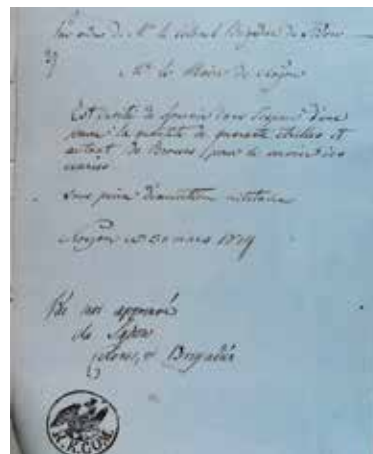 Par ordre de Mr le Colonel Brigadier de
Mr le Maire de Noyon
Est invité de fournir dans l'espace d'une
heure la quantité de quarante étrilles et
autant de Brosses pour le service des
sous peine d'exécution militaire
Noyon ce 30 mars 1814
approuvé
de
Colonel, et Brigadier
K.K.COM.